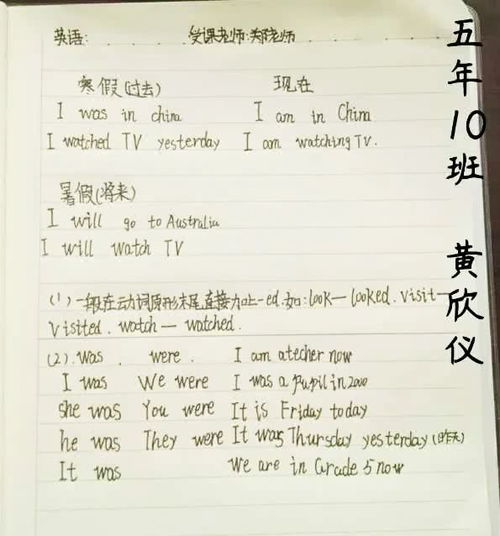 英语: 授课老师:郑陵老师
寒假(过去) 现在
I was in china I am in China
I watched TV yesterday I am watching TV.
暑假(将来)
I will go to Australia
I will watch TV
(1)一般在动词原形末尾直接加上-ed.如:look—looked.visit—
visited. watch — watched.
(2).was . were. I am atecher now
I was We were I was a pupil in 2000
she was You were It is Friday today
he was They were It was Thursday yesterday (昨天)
It was We are in Grade 5 now
五年10班 黄欣仪